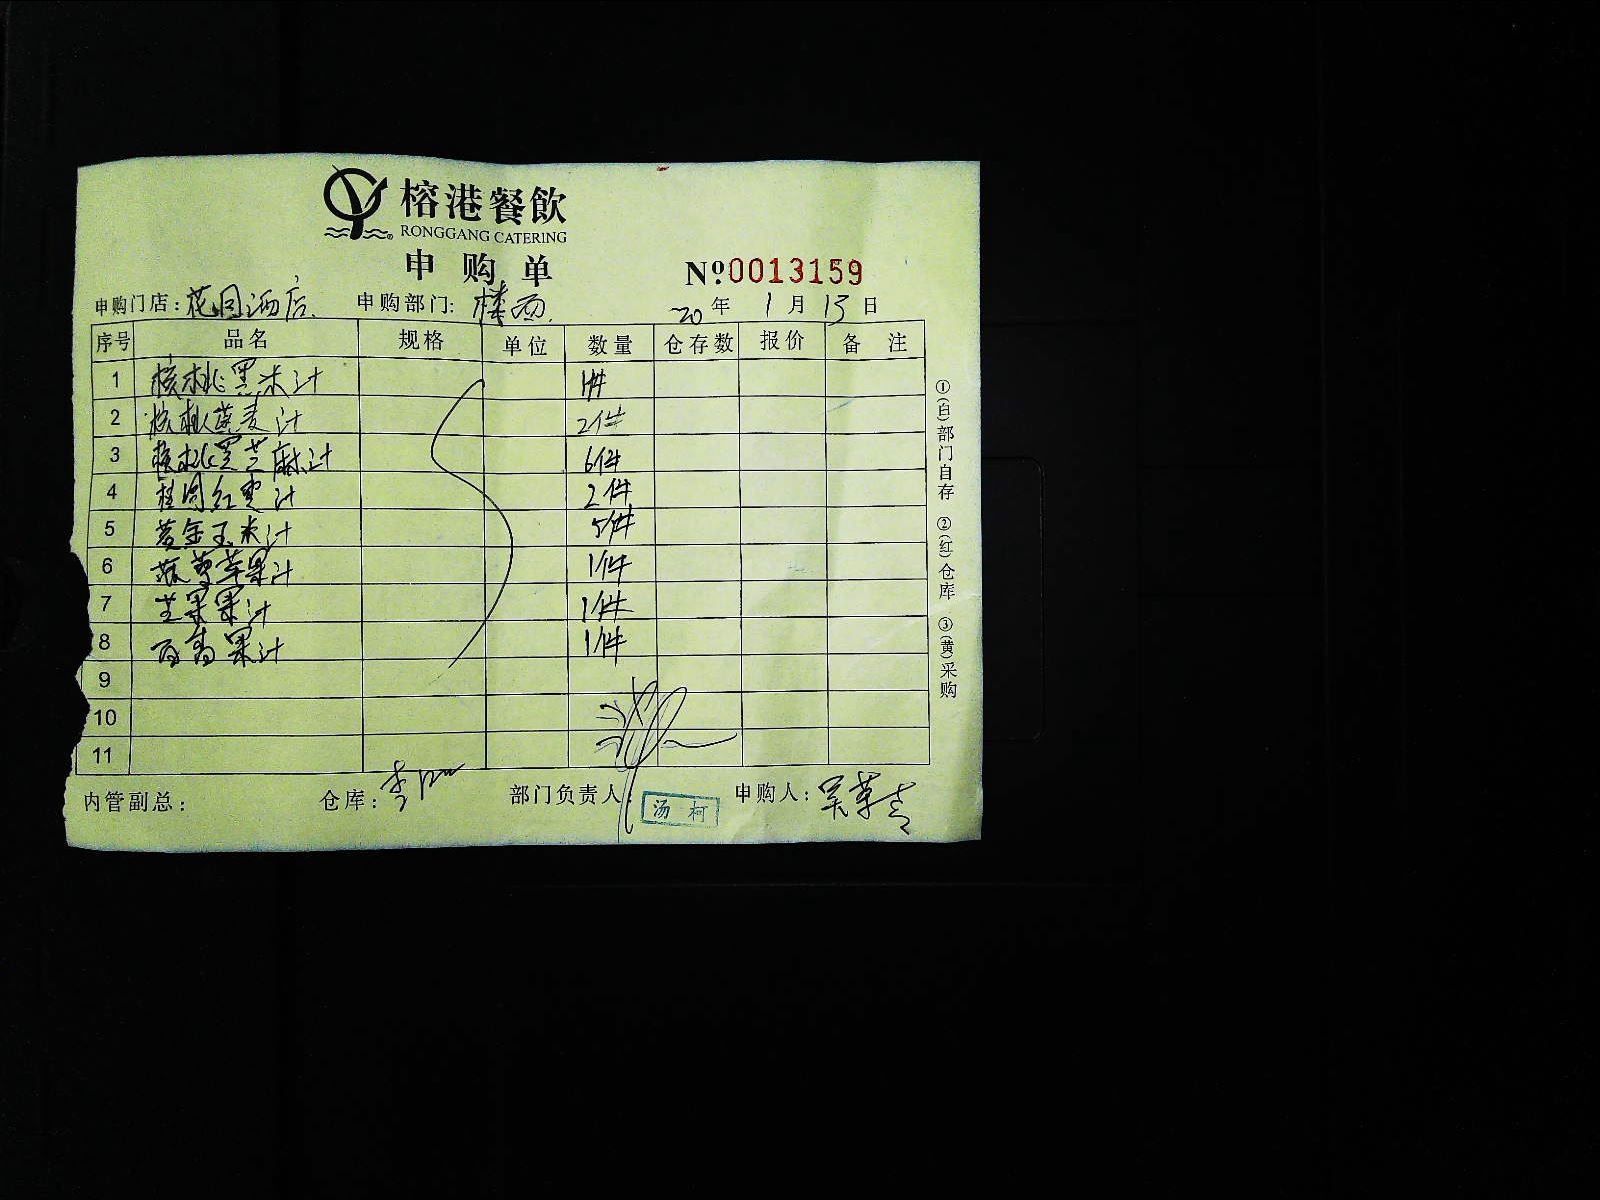 榕港餐飲
RONGGANG CATERING
申购单
№0013159
申购门店：花园酒店 申购部门：楼面 20年1月13日
序号 品名 规格 单位 数量 仓存数 报价 备注
1 核桃黑米汁 1件
2 核桃燕麦汁 2件
3 核桃黑芝麻汁 6件
4 桂圆红枣汁 2件
5 黄金玉米汁 5件
6 菠萝苹果汁 1件
7 芒果果汁 1件
8 百香果汁 1件
9
10
11
内管副总： 仓库：李 部门负责人： 汤柯 申购人：吴翠青
①(白)部门自存 ②(红)仓库 ③(黄)采购